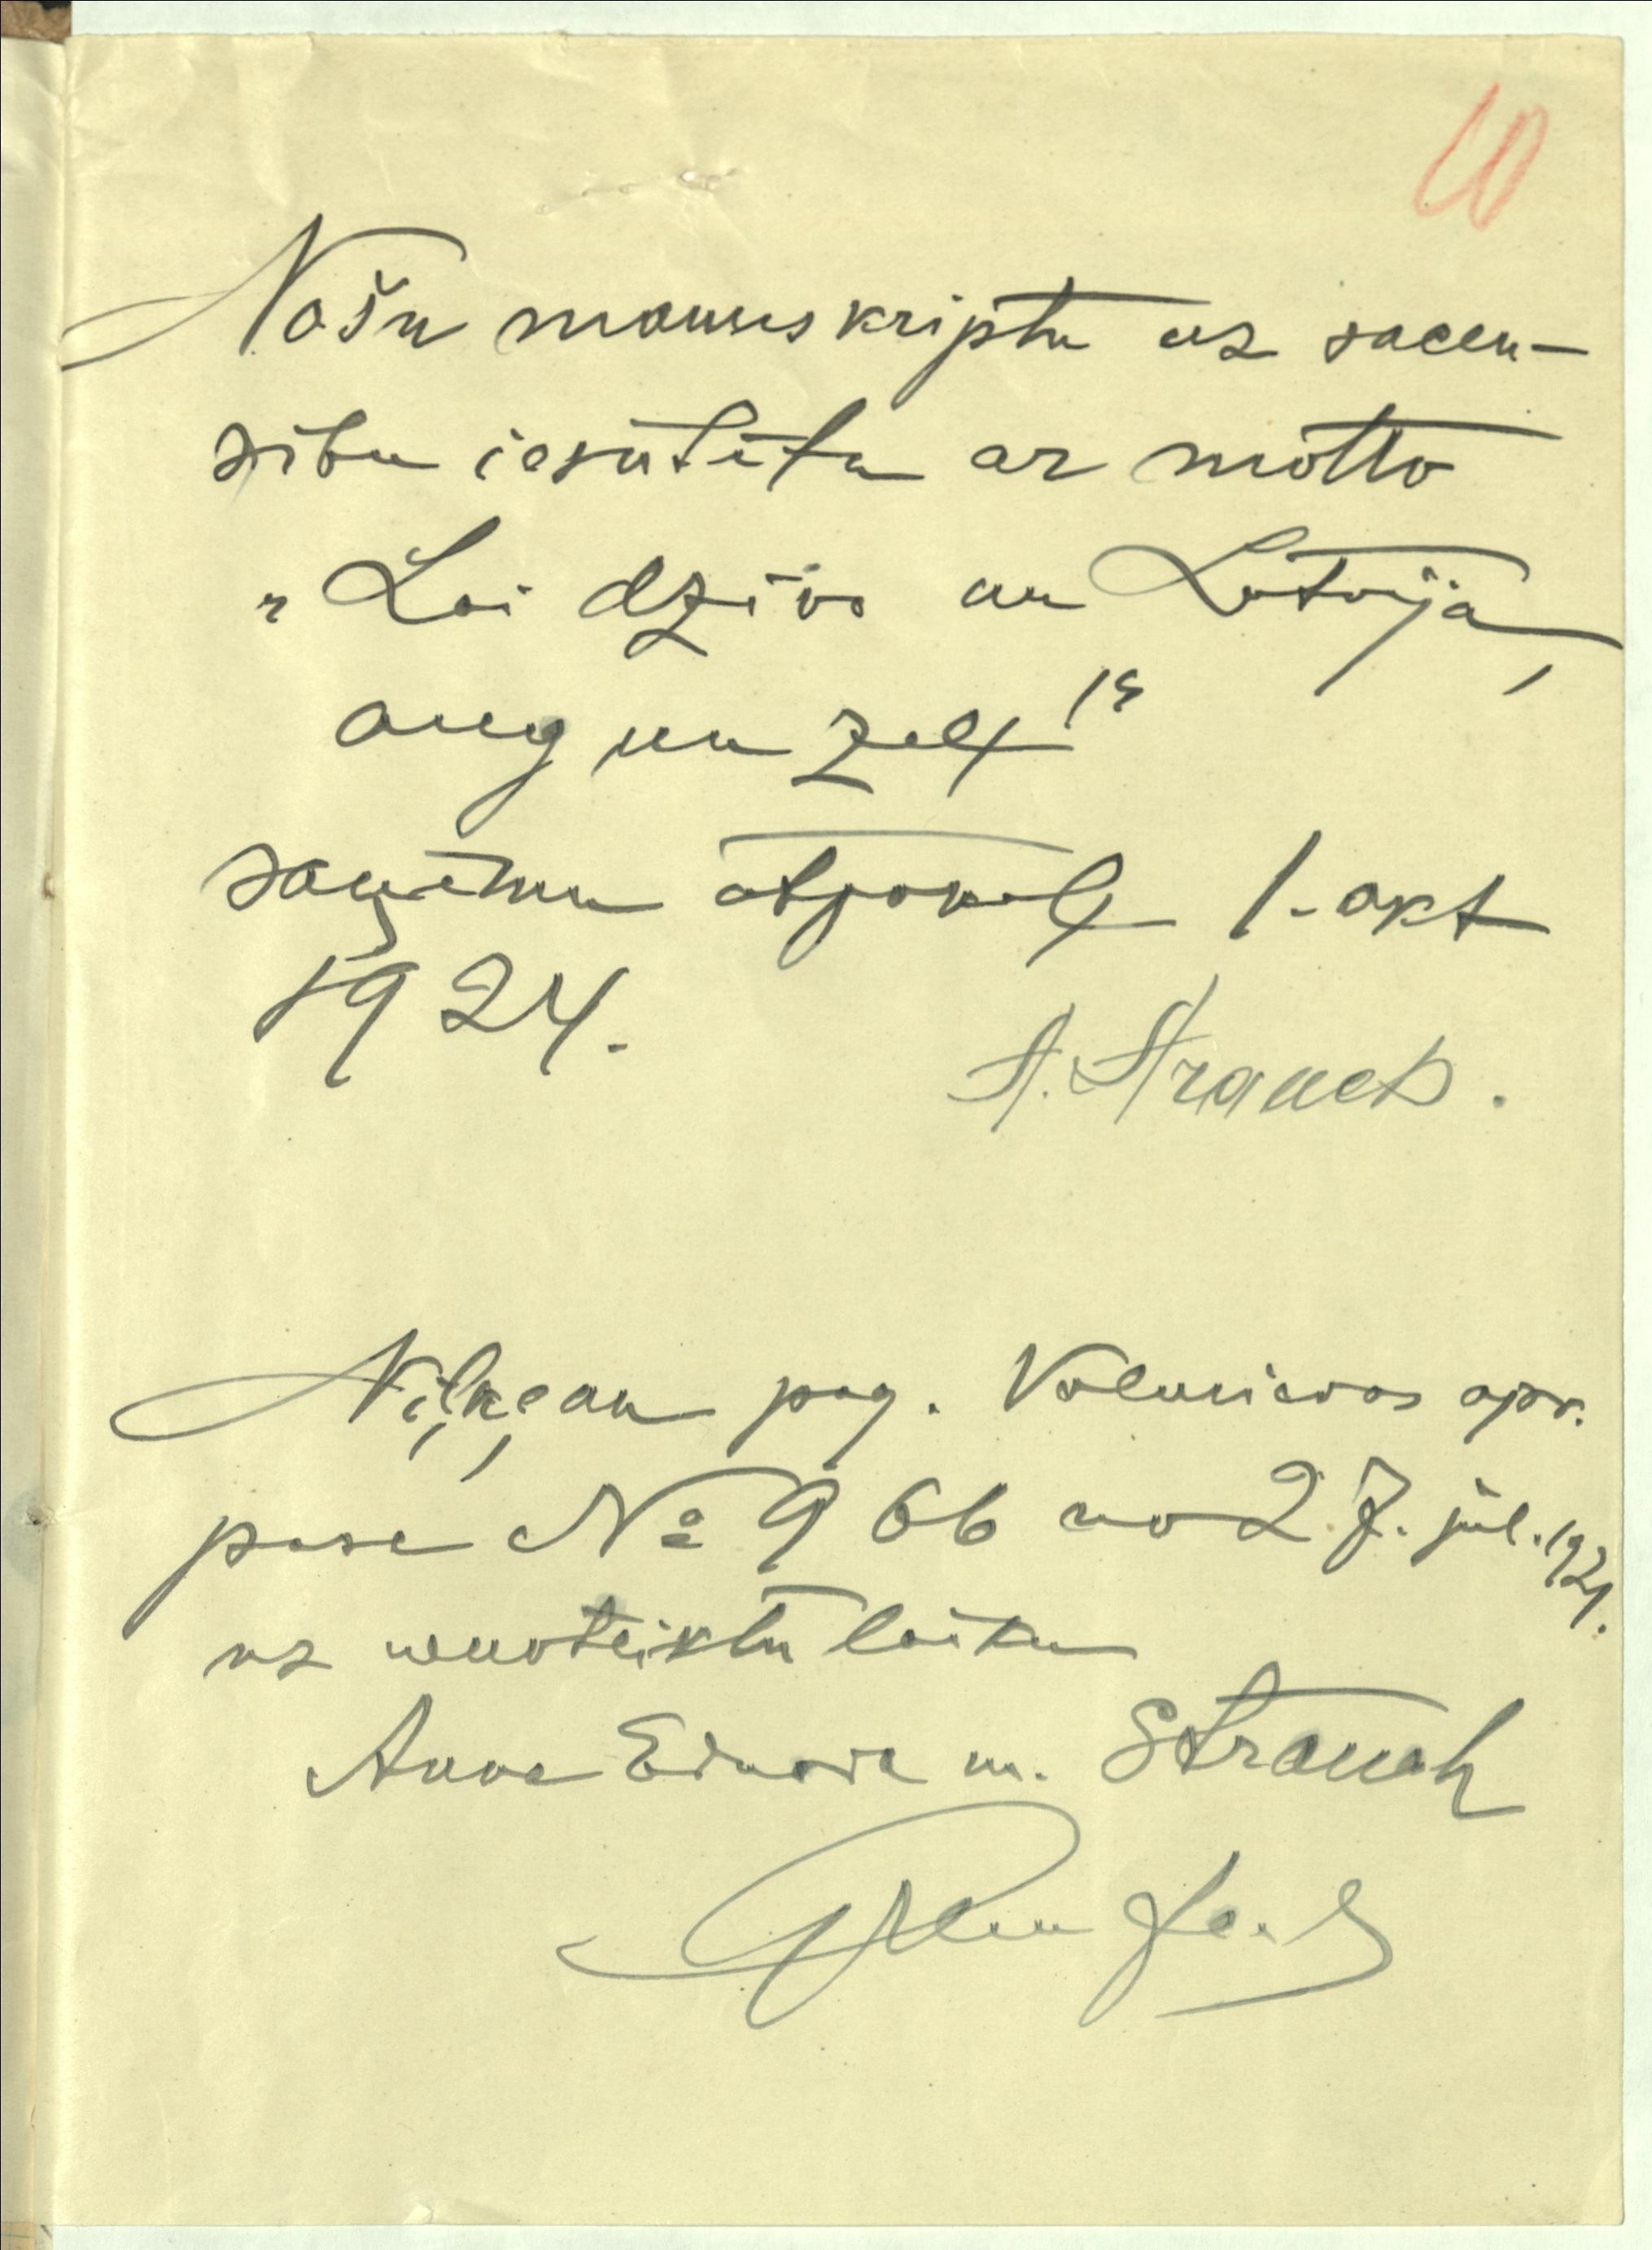 10
Nošu manuskriptu uz sacen-
sību iesūtītu ar motto
„Lai dzīvo un Latvija,
aug un zeļ!“
saņēmu atpakaļ 1. okt
1924.
A. Strauch.
Niķkean pag. Valmieras apr.
pase № 966 no 27. jūl. 1921.
uz nenoteiktu laiku
Anna Eduarda m. Strauch